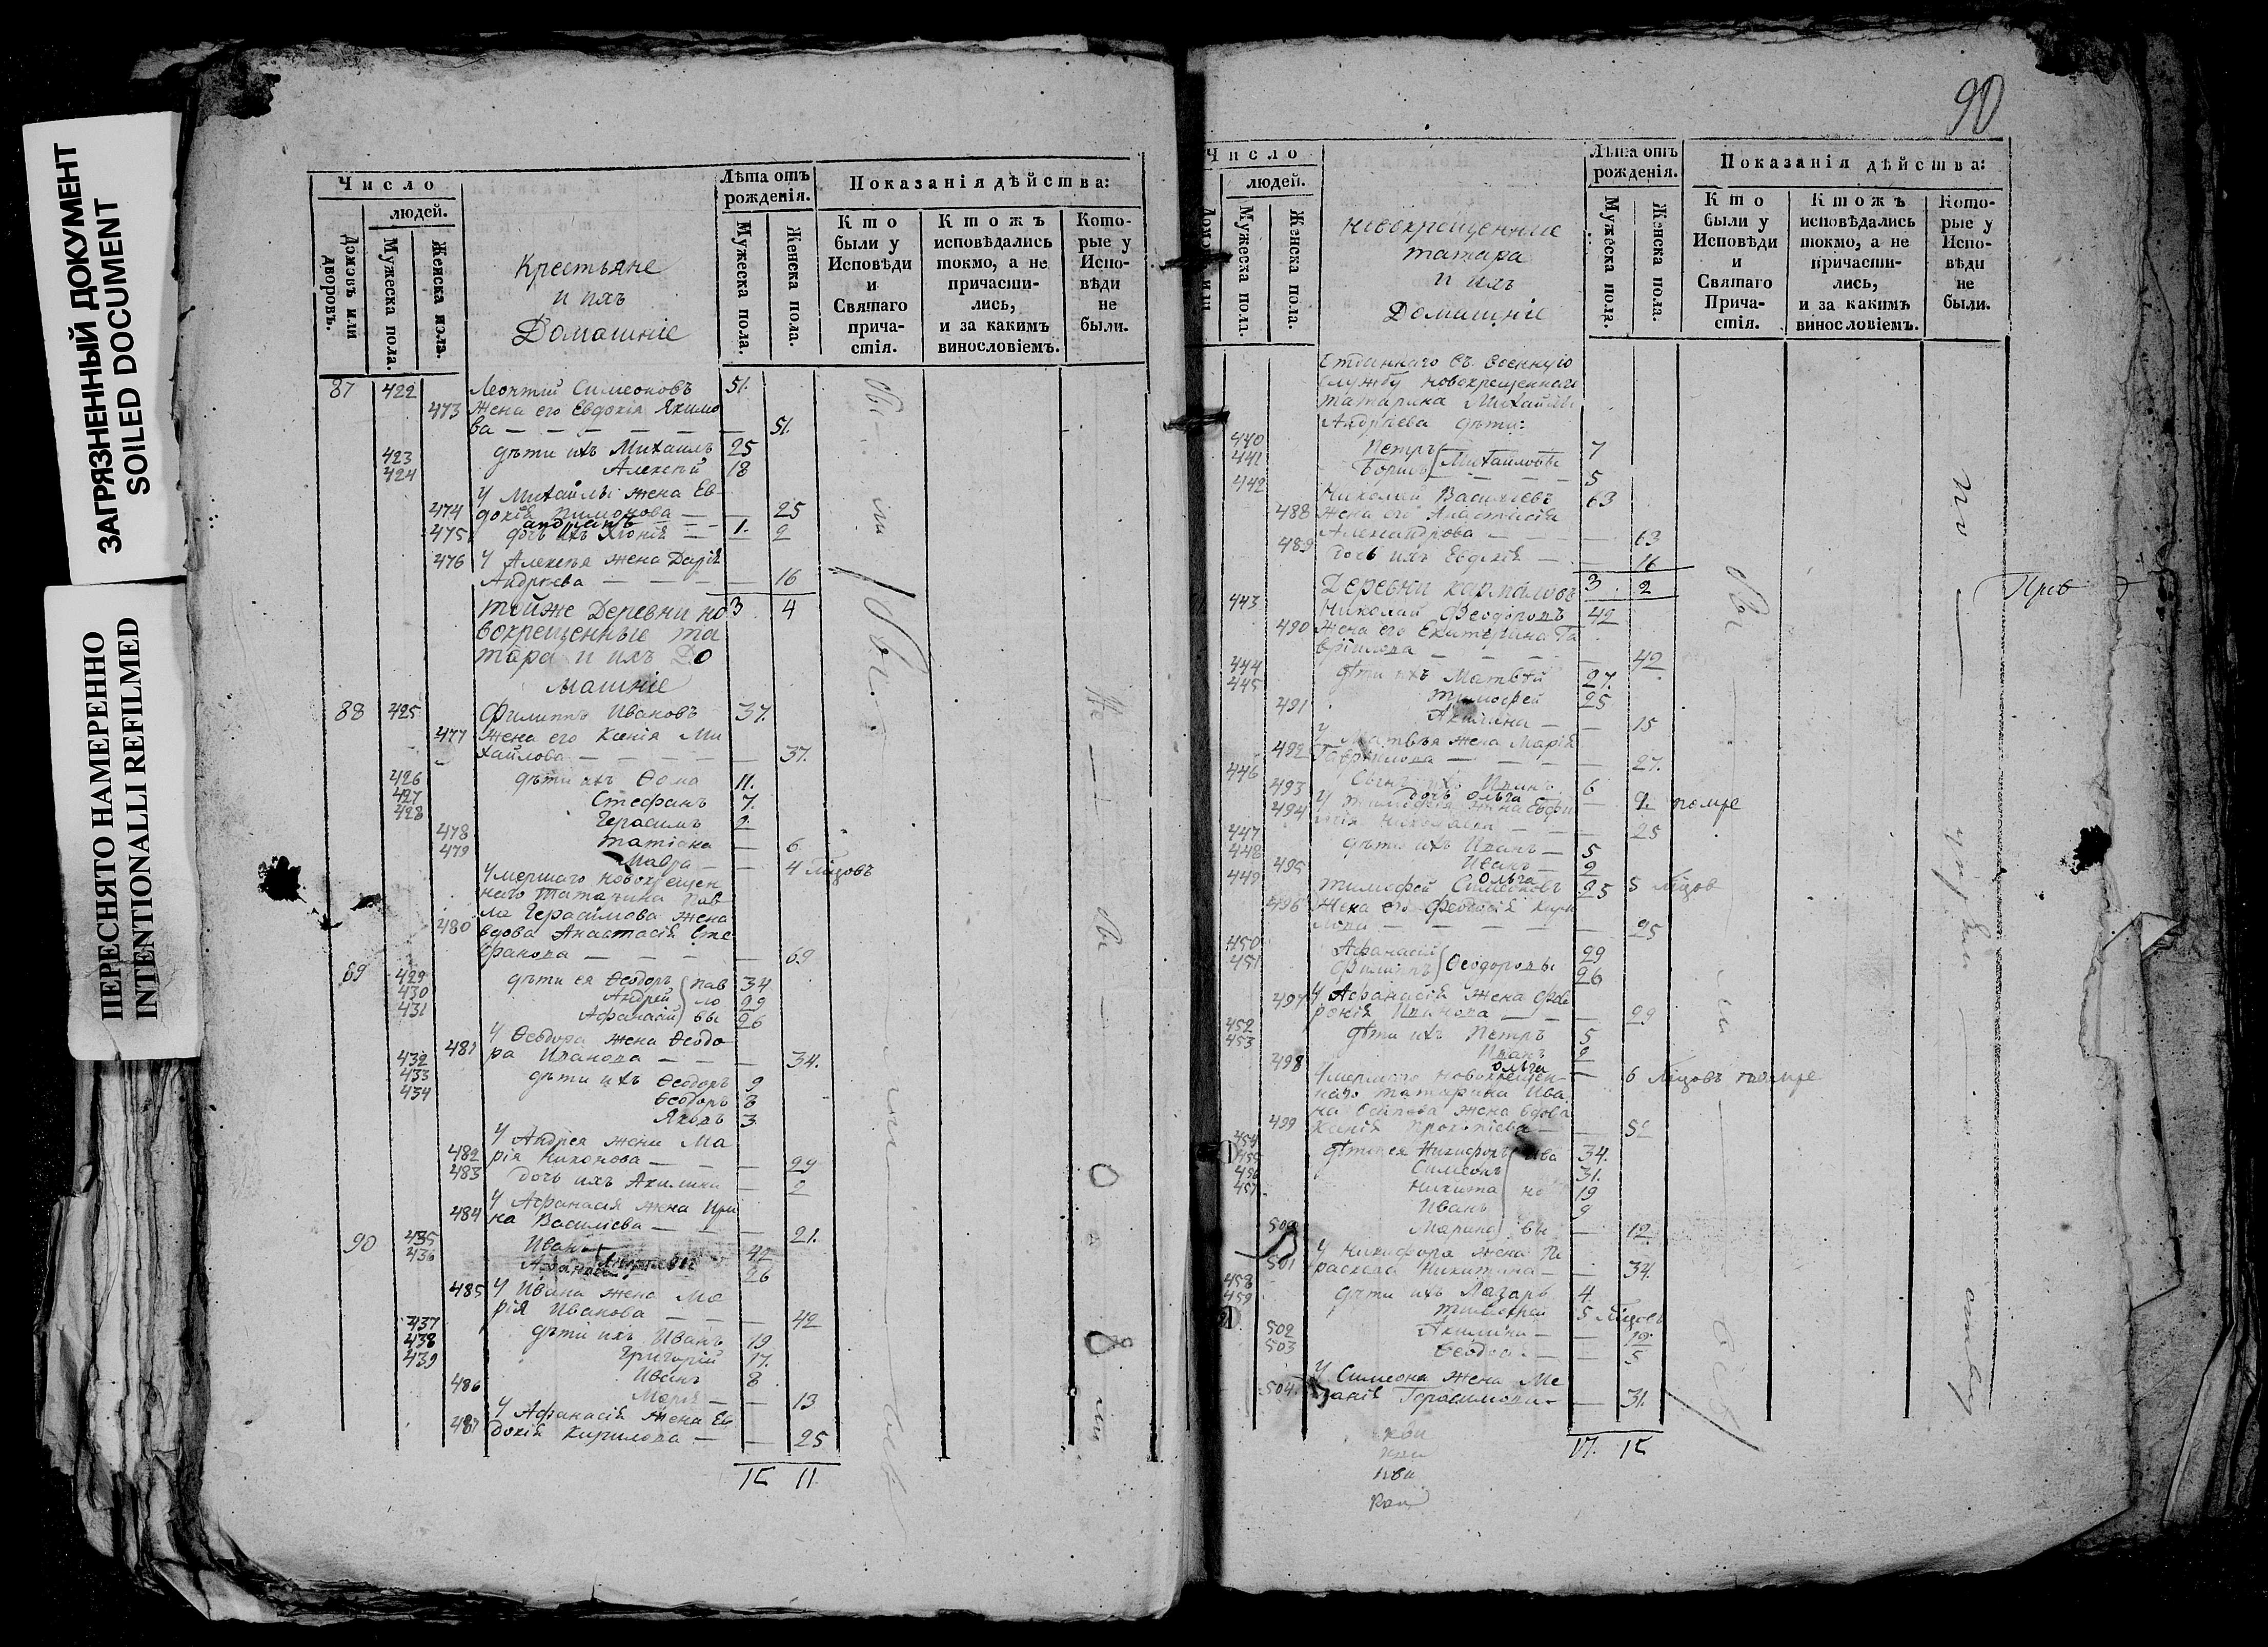 ЗАГРЯЗНЕННЫЙ ДОКУМЕНТ
SOILED DOCUMENT
ПЕРЕСНЯТО НАМЕРЕННО
INTENTIONALLI REFILMED
Число
людей.
Домовъ или дворовъ.
Мужеска пола.
Женска пола.
Крестьяне
и ихъ
Домашніе
Лѣта отъ рожденія.
Мужеска пола.
Женска пола.
Показанія дѣйства:
Кто были у Исповѣди и Святаго причастія.
Ктожъ исповѣдались токмо, а не причастились, и за какимъ винословіемъ.
Которые у Исповѣди не были.
87 422 Леонтій Симеоновъ 51.
473 Жена его Евдокія Якимо
ва 51.
423 дѣти ихъ Михаилъ 25
424 Алексѣй 18
У Михаилы жена Ев
474 докія 25
475 дочь ихъ 1. 2
476 У Алексѣя жена Дарія
Андреева 16
тойже Деревни но 3 4
вокрещенные та
тара и ихъ До
машніе
88 425 Филиппъ Ивановъ 37.
477 Жена его Ксенія Ми
хайлова 37.
426 дѣти ихъ Ѳома 11.
427 Стефанъ 7.
428 Герасимъ 2
478 татіана 6
479 Мавра 4
Умершаго новокрещен
наго татарина Пав
ла Герасимова жена
480 вдова Анастасія Сте
фанова 69
69 429 дѣти ея Ѳеодоръ Пав 34
430 Андрей ло 29
431 Афанасій вы 26
У Ѳеодора жена Ѳеодо
481 ра Иванова 34.
432 дѣти ихъ Ѳеодоръ 9
433 Ѳеодоръ 8
434 Яковъ 3
У Андрея жена Ма
482 рія Никонова 29
483 дочь ихъ Акилина 2
У Афанасія жена Ири
484 на Василіева 21.
90 435 Иванъ 42
436 26
485 У Ивана жена Ма
рія Иванова 42
437 дѣти ихъ Иванъ 19
438 Григорій 17.
439 Иванъ 8
486 Марія 13
У Афанасія жена Ев
487 докія Кирилова 25
15 11.
90
Число
людей.
Мужеска пола.
Женска пола.
новокрещенные
татара
и ихъ
Домашніе
Лѣта отъ рожденія.
Мужеска пола.
Женска пола.
Показанія дѣйства:
Кто были у Исповѣди и Святаго Причастія.
Ктожъ исповѣдались токмо, а не причастились, и за какимъ винословіемъ.
Которые у Исповѣди не были.
Отданнаго въ военную
службу новокрещеннаго
татарина Михайлы
Андреева дѣти:
440 Петръ 7
441 Борисъ Михайловы 5
442 Николай Василіевъ 63
488 жена его Анастасія
Александрова 63
489 дочь ихъ Евдокія 16
Деревни 3 2
443 Николай Феодоровъ 42
490 Жена его Екатерина Га
врилова 42
444 дѣти ихъ Матвѣй 27.
445 тимофей 25
491 Акилина 15
У Матвѣя жена Марія
492 Гаврилова 27.
446 Сынъ ихъ Иванъ 6
493 дочь Ольга помре
494 У тимофея жена
25
447 дѣти ихъ Иванъ 5
448 Иванъ 2
495 Ольга 5
449 тимофей Симеоновъ 25
496 Жена его Феодосія Кири
лова 25
450 Афанасій 29
451 Филипъ Ѳеодоровы 26
497 У Афанасія жена Фев
ронія Иванова 29
452 дѣти ихъ Петръ 5
453 Иванъ 2
498 Ольга 6 помре
Умершаго новокрещен
наго татарина Ива
на Осипова жена вдова
499 Прокопіева
454 дѣти ея Никифоръ Ива 34.
455 Симеонъ 31.
456 Никита но 19
457 Иванъ 9
500 Марина вы 12
У Никифора жена Па
501 раскева Никитина 34.
458 дѣти ихъ Лазарь 4.
459 тимофей 5
502 Акилина 12
503 Ѳеодора 5
У Симеона жена Ме
504 ланія Герасимова 31.
17. 15